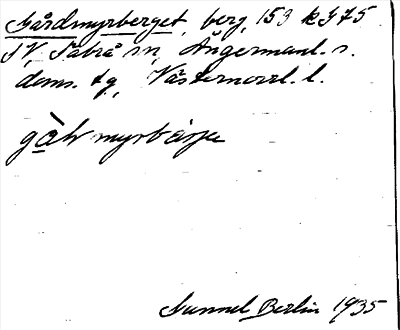 Gårdmyrberget, berg, 153 k I 75
SV, Säbrå sn, Ångermanl. s.
doms. tg, Västernorrl. l.
gàḷmyrbärje
Gunnel Berlin 1935